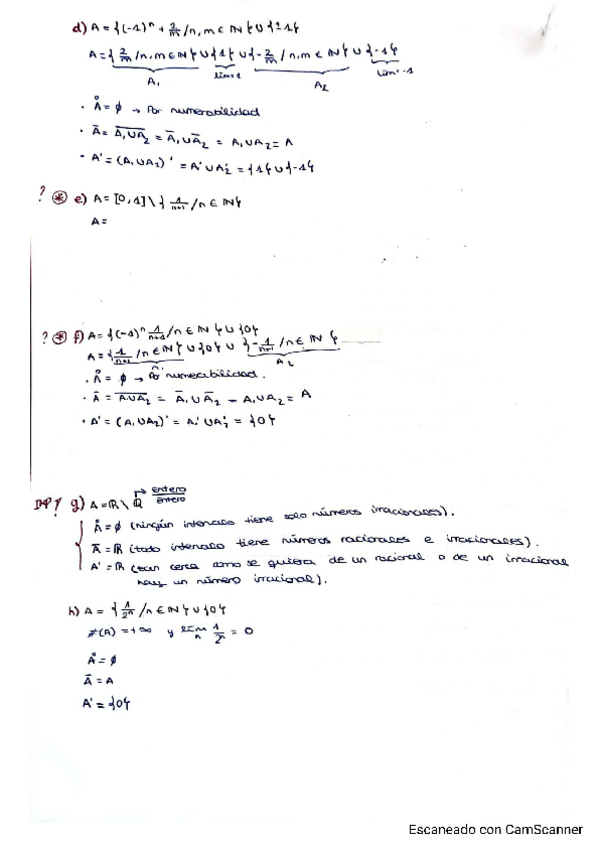 d) A = {(-1)ⁿ + 2/m / n, m ∈ ℕ} ∪ {±1}
A = {2/m / n, m ∈ ℕ} ∪ {1} ∪ {-2/m / n, m ∈ ℕ} ∪ {-1}
A₁ lim=1 A₂ lim=-1
· Å = ∅ → Por numerabilidad
· Ā = A₁∪A₂ = Ā₁ ∪ Ā₂ = A₁ ∪ A₂ = A
· A' = (A₁ ∪ A₂)' = A' ∪ A₂' = {1} ∪ {-1}
? * e) A = [0,1] \ { 1/n+1 / n ∈ ℕ}
A =
? * f) A = {(-1)ⁿ 1/n+1 / n ∈ ℕ} ∪ {0}
A = {1/n+1 / n ∈ ℕ} ∪ {0} ∪ {-1/n+1 / n ∈ ℕ}
A₂
· Å = ∅ → Por numerabilidad.
· Ā = A₁∪A₂ = Ā₁ ∪ Ā₂ = A₁ ∪ A₂ = A
· A' = (A₁ ∪ A₂)' = A₁' ∪ A₂' = {0}
IMP ? g) A = ℝ \ ℚ → entero/entero
Å = ∅ (ningún intervalo tiene solo números irracionales).
Ā = ℝ (todo intervalo tiene números racionales e irracionales).
A' = ℝ (tan cerca como se quiera de un racional o de un irracional
hay un número irracional).
h) A = {1/2ⁿ / n ∈ ℕ} ∪ {0}
#(A) = +∞ y lim n 1/2ⁿ = 0
Å = ∅
Ā = A
A' = {0}
Escaneado con CamScanner